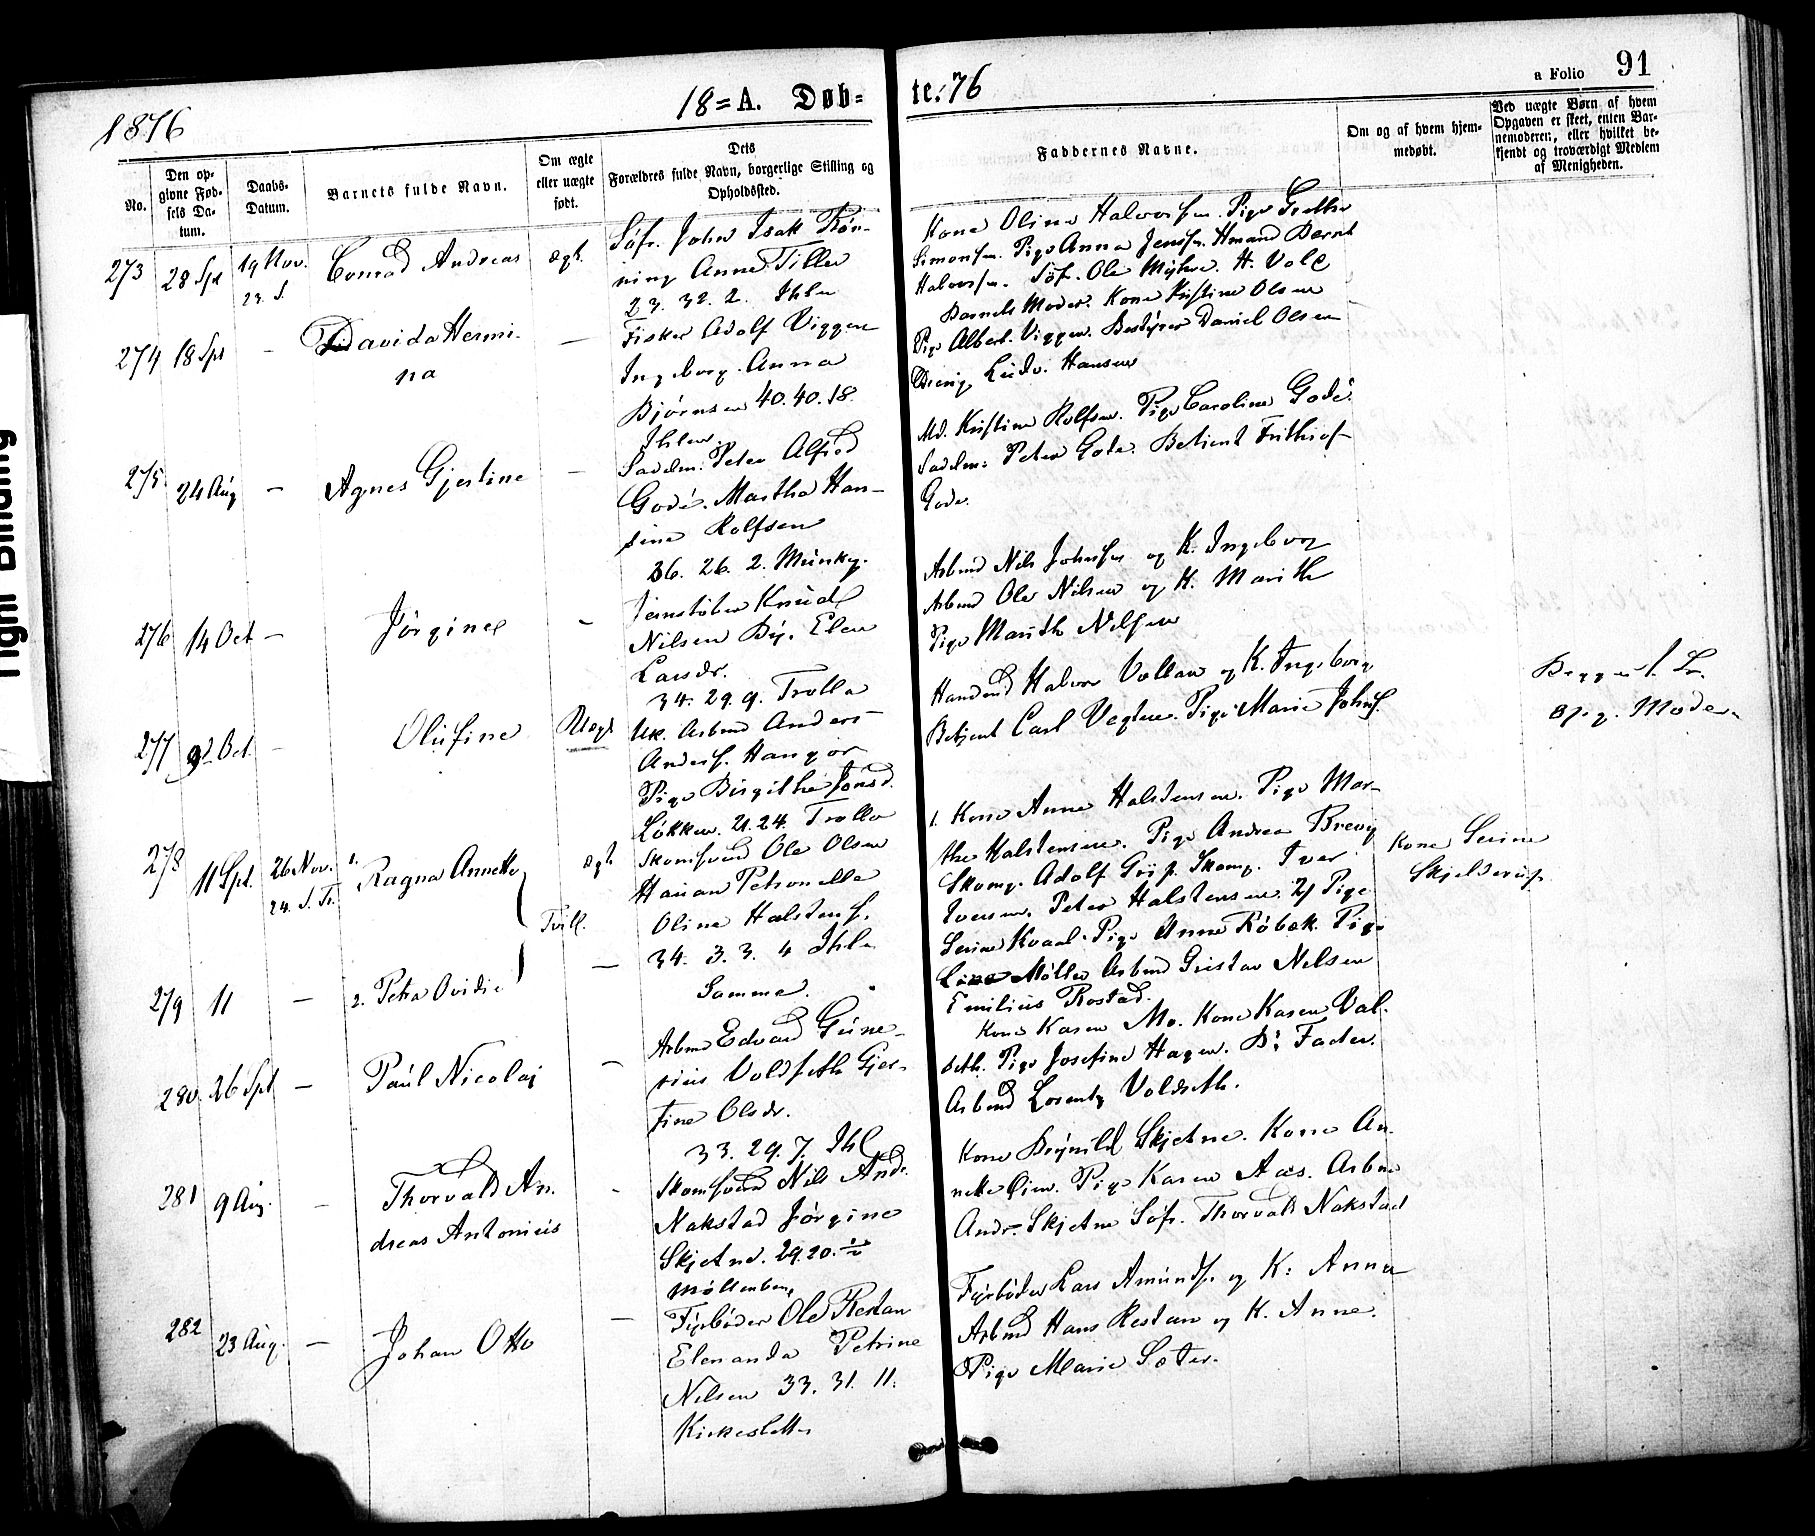 Tight Binding
1876
18=A. Døb=
te. 76
a Folio 91
No.
Den op-
givne Fød-
sels Da-
tum.
Daabs-
Datum.
Barnets fulde Navn.
Om ægte
eller uægte
født.
Dets
Forældres fulde Navn, borgerlige Stilling og
Opholdssted.
Faddernes Navne.
Om og af hvem hjem-
medøbt.
Ved uægte Børn af hvem
Opgaven er skeet, enten Bar-
nemoderen, eller hvilket be-
kjendt og troværdigt Medlem
af Menigheden.
273 28 Spt 19 Nov. Conrad Andreas ægt.
23. S.
Søfr. John Isak Røn-
ning Anna Tiller
23. 32. 2. Ihlen
Kone Oline Halvorsen. Pige Grethe
Simonsen. Pige Anna Jenssen. Hmand Bernt
Halvorsen. Søfr. Ole Myhre. H. Vold
Barnets Moder. Kone Kristine Olsen
274 18 Spt - Davida Hermi-
na
Fisker Adolf Viggen
Ingeborg Anna
Bjørnsen 40. 40. 18.
Ihlen.
Pige Albert. Viggen. Bestyrer Daniel Olsen
Ludv. Hansen
275. 24 Aug - Agnes Gjertine -
Sadelm: Peter Alfred
Godé. Martha Han-
sine Rolfsen
36. 26. 2. Munkg.
Md. Kristine Rolfsen. Pige Caroline Godé.
Sadelm: Peter Gode. Betient Frithiof
Gode.
276 14 Oct - Jörgine -
Jernstøber Knud
Nilsen By. Elen
Larsdr.
34. 29. 9. Trolla
Arbmd Nils Johnsen og K. Ingeborg
Arbmd Ole Nilsen og K. Marith
Pige Marith Nilsen
277 9d Oct. - Olufine Uægt
Uk. Arbmd Anders
Anders. Hangör
Pige Birgithe Jonsd.
Løkken. 21. 24. Trolla
Handmd Halvor Vollan og K. Ingeborg
Betjent Carl Vegten. Pige Marie Johns.
Begges 1. L.
opg. Moder
278 11 Spt. 26 Nov. 1. Ragna Annette ægt
24. S. Tr. Tvill.
Skomsvend Ole Olsen
Hauan Petronelle
Oline Halstens.
34. 3.3. 4 Ihlen
1. Kone Anne Halstensen. Pige Mar-
the Halstensen. Pige Andrea Brevig
Skomg. Adolf Gip. Skomg. Iver
Iversen. Peter Halstensen. 2) Pige
Kone Serine
Skjelderup
Serine Kvaal. Pige Anne Røbæk. Pige
Line Møller Arbmd Gustav Nilsen
Emilius Rostad.
279 11 - 2. Petra Ovidie -
Samme.
280. 26 Spt - Paul Nicolaj -
Arbmd Edvard Gune-
rius Voldseth Gjer-
tine Olsdr.
33. 29. 7. Ihl
Kone Karen Mo. Kone Karen Val-
seth. Pige Josefine Hagen. B: Fader.
Arbmd Lorentz Voldseth.
281 9 Aug. - Thorvald An-
dreas Antonius -
Skomsvend Nils Andr.
Nakstad Jørgine
Skjetne. 29. 20. ½
Møllenberg
Kone Brynild Skjetne. Kone An-
nette Øien. Pige Karen Aas. Arbmd
Andr. Skjetne Søfr. Thorvald Nakstad
282 23 Aug. - Johan Otto -
Fyrbøder Ole Restan
Elenanda Petrine
Nilsen 33. 31. 11.
Kirkesletten
Fyrbøder Lars Amunds. og K: Anna
Arbmd Hans Restan og K. Anne.
Pige Marie Sæter.